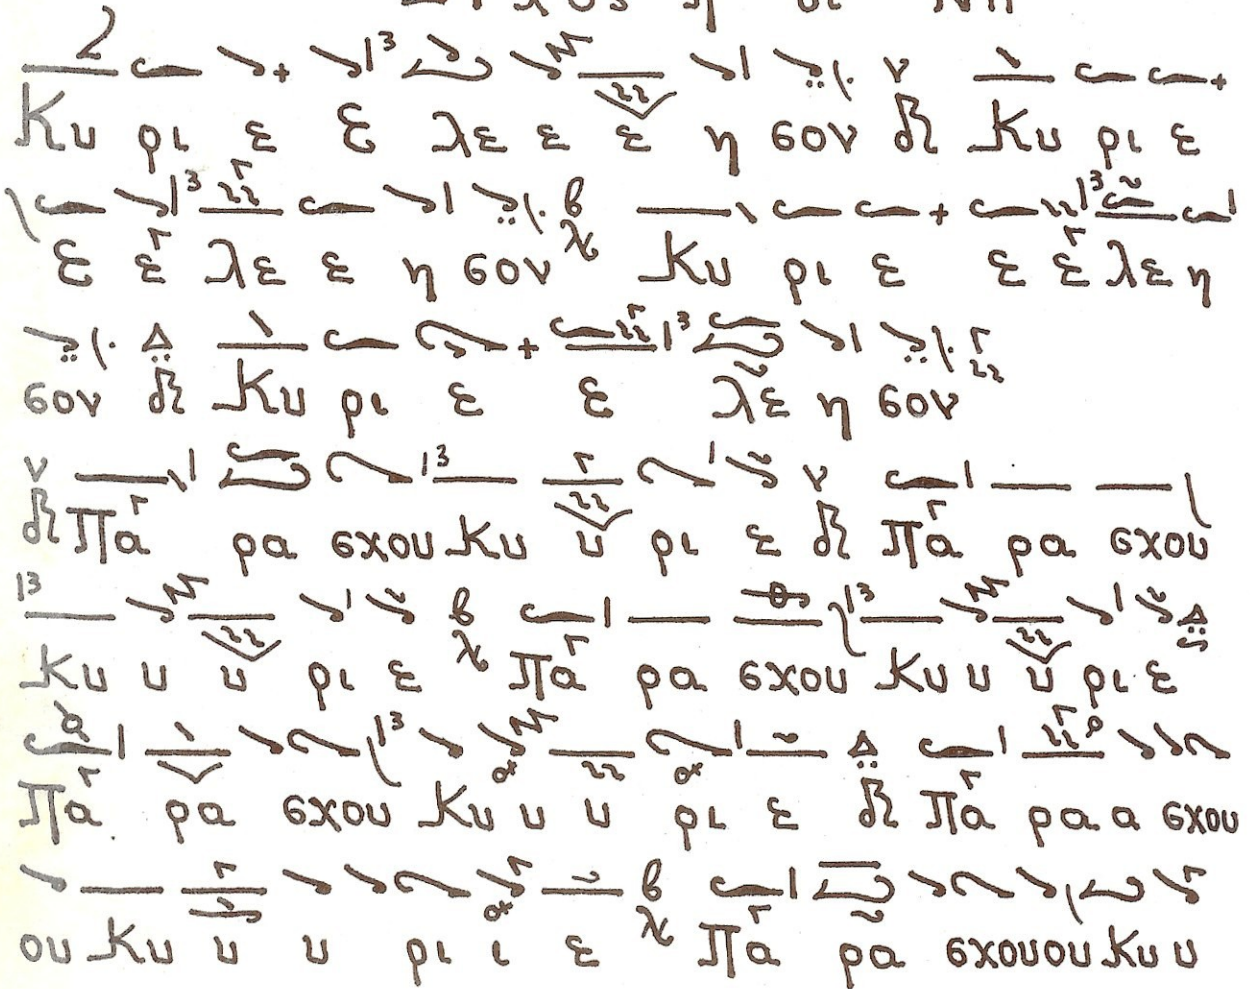 Κυ ρι ε Ε λε ε ε η σον Κυ ρι ε
Ε ε λε ε η σον Κυ ρι ε ε ε λε η
σον Κυ ρι ε ε λε η σον
Πα ρα σχου Κυ υ ρι ε Πα ρα σχου
Κυ υ υ ρι ε Πα ρα σχου Κυ υ υ ρι ε
Πα ρα σχου Κυ υ υ ρι ε Πα ρα α σχου
ου Κυ υ υ ρι ι ε Πα ρα σχουου Κυ υ